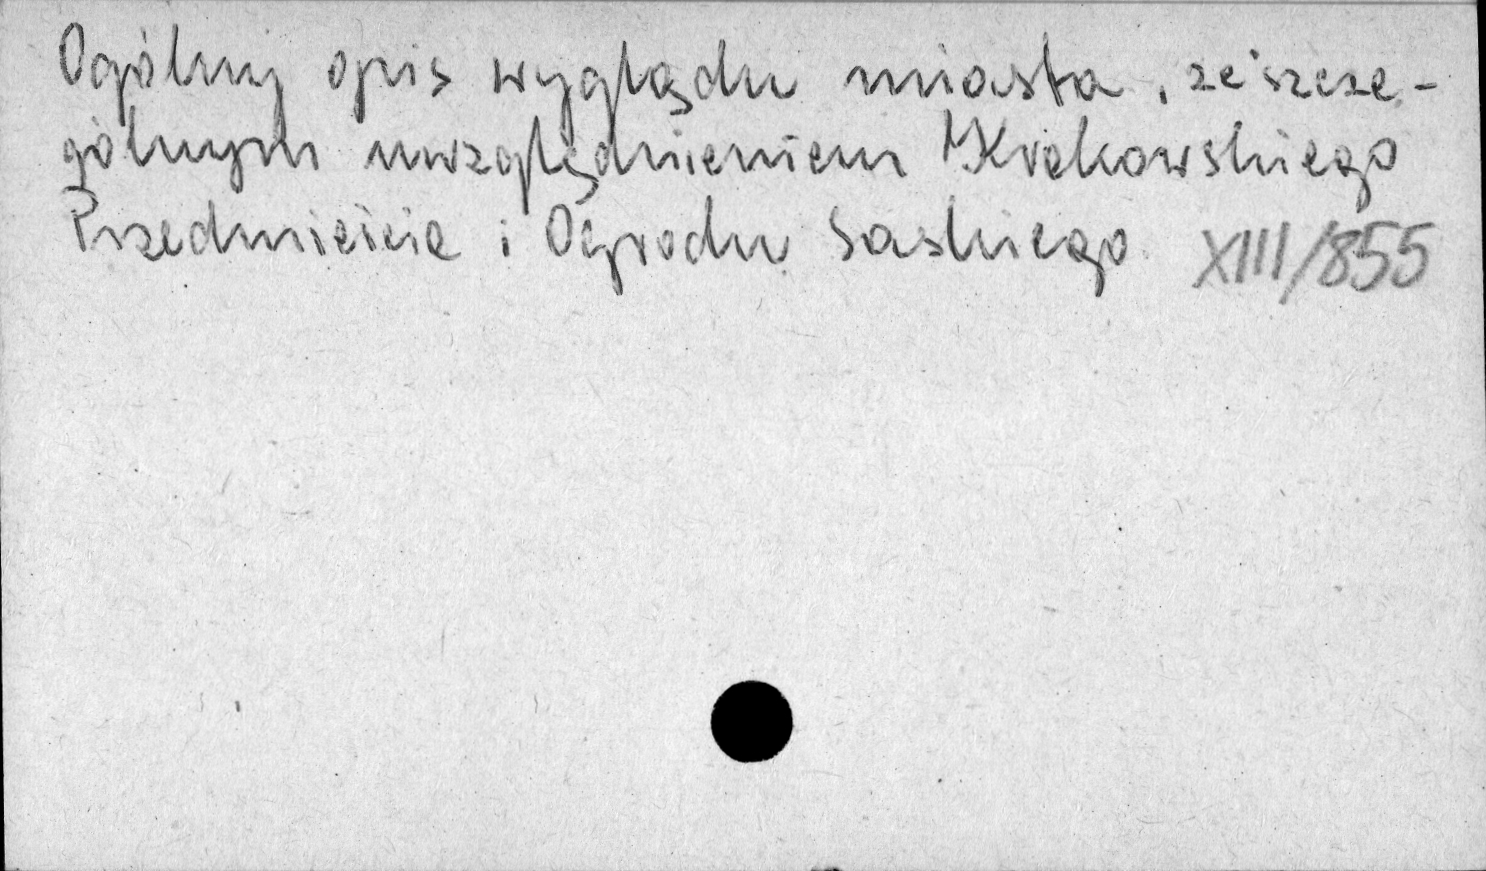 Ogólny opis wyglądu miasta, ze szcze-
gólnym uwzględnieniem Krakowskiego
Przedmieścia i Ogrodu Saskiego XIII/855